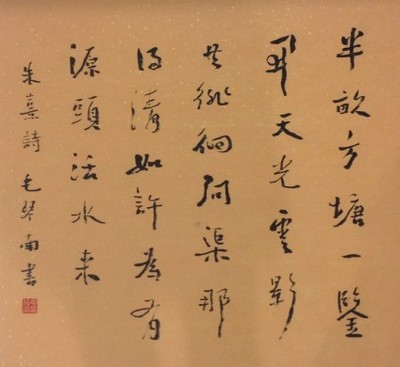 半畝方塘一鑒
開天光雲影
共徘徊問渠那
得清如許為有
源頭活水來
朱熹詩 毛琴南書